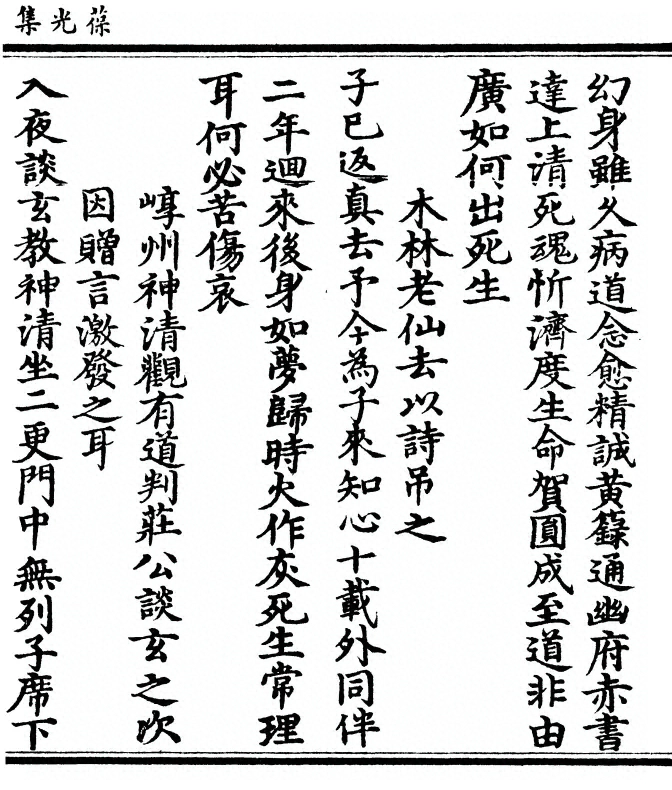 葆光集
幻身雖久病道念愈精誠黃籙通幽府赤書
達上清死魂忻濟度生命賀圓成至道非由
廣如何出死生
木林老仙去以詩吊之
子已返真去予今為子來知心十載外同伴
二年迴來後身如夢歸時火作灰死生常理
耳何必苦傷哀
崞州神清觀有道判莊公談玄之次
因贈言激發之耳
入夜談玄教神清坐二更門中無列子席下